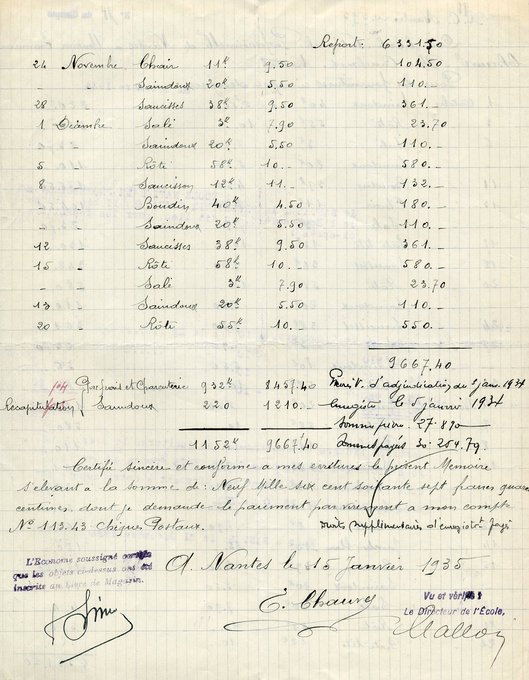 Report: 6331.50
24 Novembre Chair 11k 9.50 104.50
- Saindoux 20k 5.50 110.-
28 Saucisses 38k 9.50 361.-
1 Décembre Salé 3k 7.90 23.70
- Saindoux 20k 5.50 110.-
5 Rôti 58k 10.- 580.-
8 Saucisson 12k 11.- 132.-
- Boudin 40k 4.50 180.-
- Saindoux 20k 5.50 110.-
12 Saucisses 38k 9.50 361.-
15 Rôti 58k 10.- 580.-
- Salé 3k 7.90 23.70
13 Saindoux 20k 5.50 110.-
20 Rôti 55k 10.- 550.-
9667.40
Porc frais et Charcuterie 932k 8457.40
Recapitulation Saindoux 220 1210.-
1152k 9667.40
d'adjudication du 5 janv. 1934
enregistré le 5 janvier 1934
27.890
30.254.79
Certifié sincère et conforme a mes ecritures le présent Memoire
s'elevant a la somme de: Neuf Mille six cent soixante sept francs quarante
centimes, dont je demande le paiement par virement a mon compte
N° 113.43 Chèques Postaux.
Droits supplémentaires d'enregistrt payés
A Nantes le 15 Janvier 1935
L'Econome soussigné certifie
que les objets ci-dessus ont été
inscrits au Livre de Magasin.
E. Chauvet
Vu et vérifié
Le Directeur de l'École,